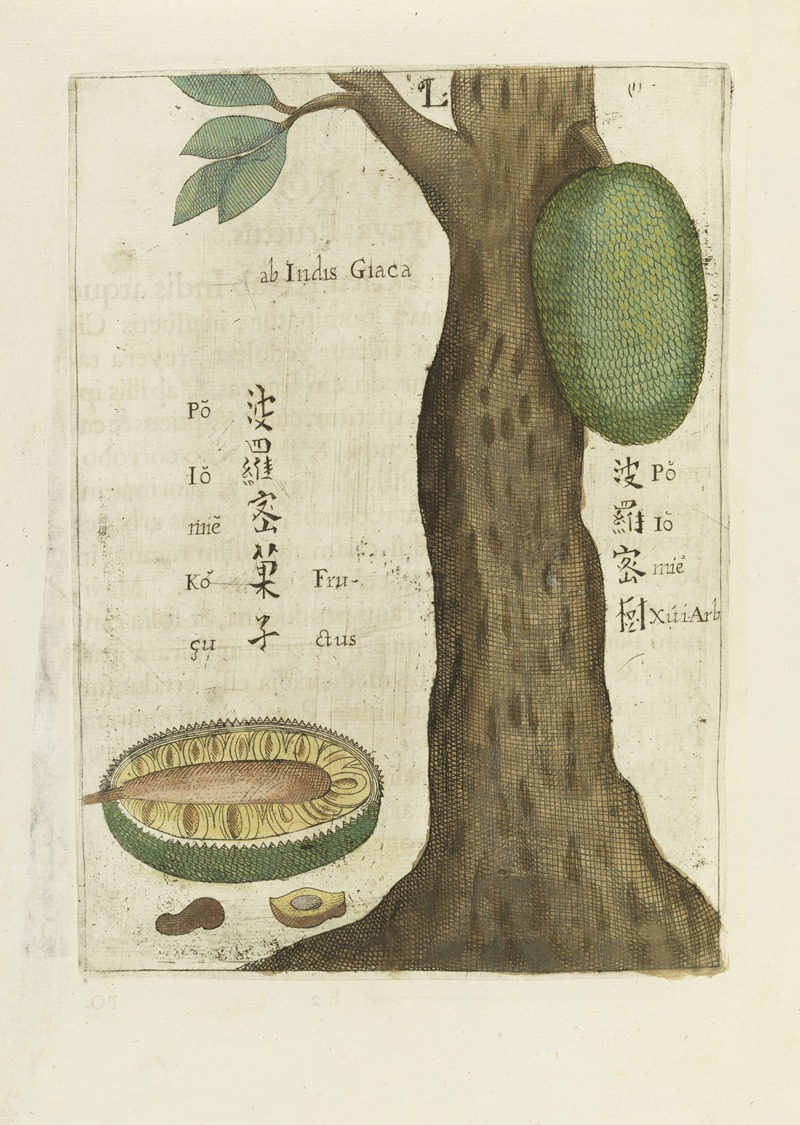 L
ab Indis Giaca
Pŏ 波
Iŏ 羅
miĕ 密
Ko᷄ 菓 Fru-
çu 子 ctus
波 Pŏ
羅 Iŏ
密 miĕ
樹 Xúi Arb